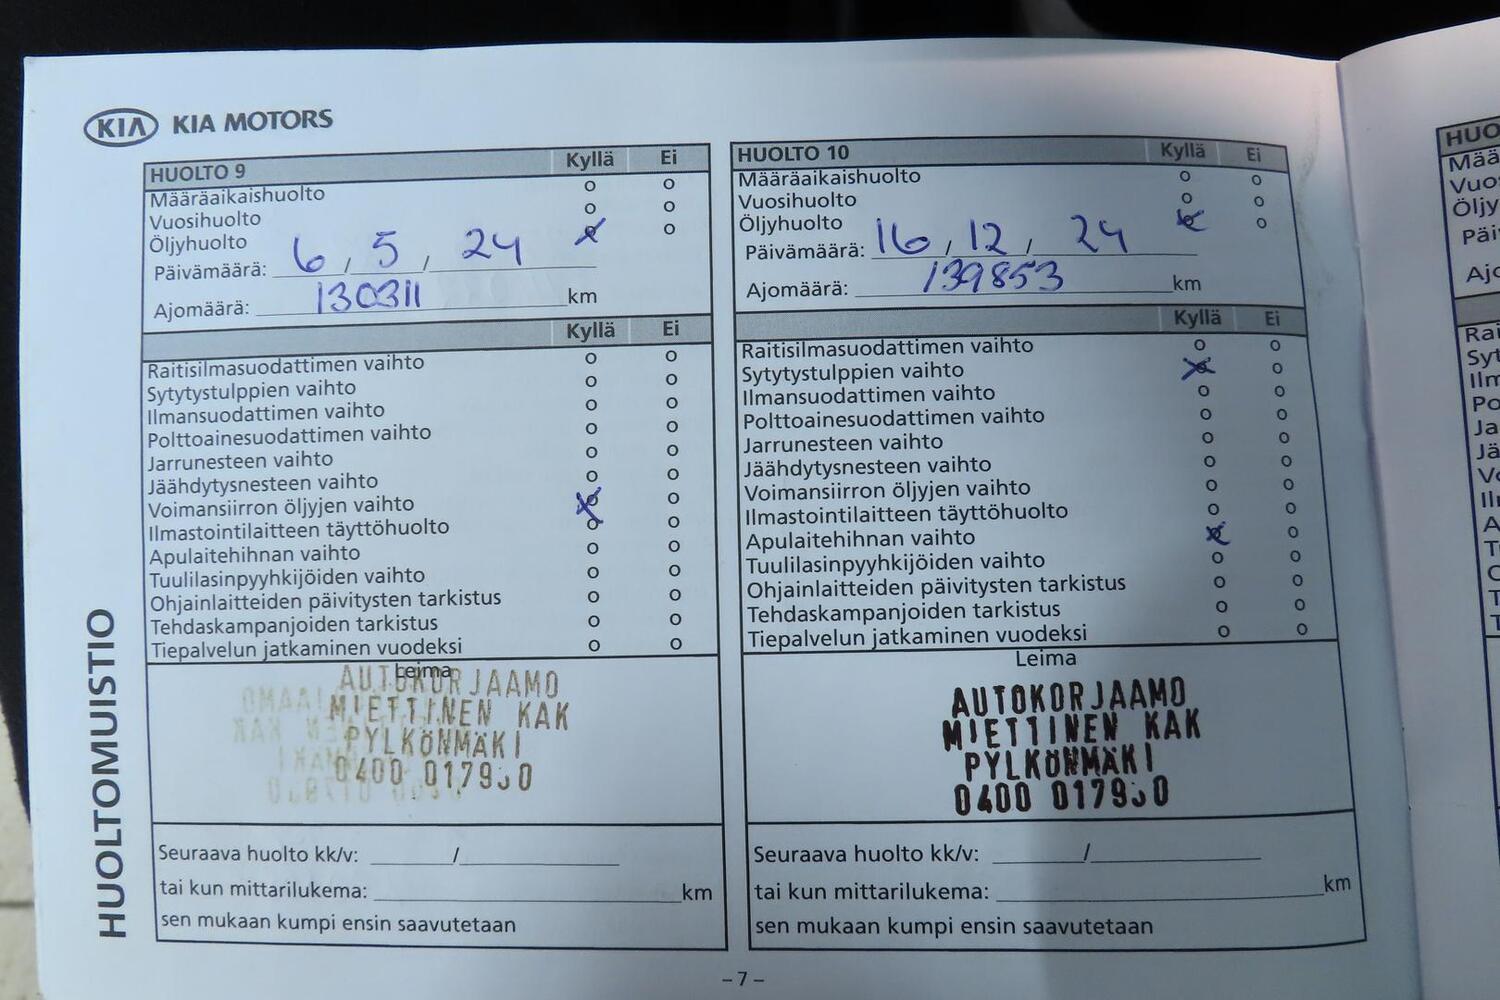 KIA KIA MOTORS
HUOLTOMUISTIO
HUOLTO 9 Kyllä Ei
Määräaikaishuolto o o
Vuosihuolto o o
Öljyhuolto x o
Päivämäärä: 6 / 5 / 24
Ajomäärä: 130311 km
Kyllä Ei
Raitisilmasuodattimen vaihto o o
Sytytystulppien vaihto o o
Ilmansuodattimen vaihto o o
Polttoainesuodattimen vaihto o o
Jarrunesteen vaihto o o
Jäähdytysnesteen vaihto o o
Voimansiirron öljyjen vaihto x o
Ilmastointilaitteen täyttöhuolto o o
Apulaitehihnan vaihto o o
Tuulilasinpyyhkijöiden vaihto o o
Ohjainlaitteiden päivitysten tarkistus o o
Tehdaskampanjoiden tarkistus o o
Tiepalvelun jatkaminen vuodeksi o o
Leima
AUTOKORJAAMO
MIETTINEN KAK
PYLKÖNMÄKI
0400
Seuraava huolto kk/v: /
tai kun mittarilukema: km
sen mukaan kumpi ensin saavutetaan
HUOLTO 10 Kyllä Ei
Määräaikaishuolto o o
Vuosihuolto o o
Öljyhuolto x o
Päivämäärä: 16 / 12 / 24
Ajomäärä: 139853 km
Kyllä Ei
Raitisilmasuodattimen vaihto o o
Sytytystulppien vaihto x o
Ilmansuodattimen vaihto o o
Polttoainesuodattimen vaihto o o
Jarrunesteen vaihto o o
Jäähdytysnesteen vaihto o o
Voimansiirron öljyjen vaihto o o
Ilmastointilaitteen täyttöhuolto o o
Apulaitehihnan vaihto x o
Tuulilasinpyyhkijöiden vaihto o o
Ohjainlaitteiden päivitysten tarkistus o o
Tehdaskampanjoiden tarkistus o o
Tiepalvelun jatkaminen vuodeksi o o
Leima
AUTOKORJAAMO
MIETTINEN KAK
PYLKÖNMÄKI
0400
Seuraava huolto kk/v: /
tai kun mittarilukema: km
sen mukaan kumpi ensin saavutetaan
– 7 –